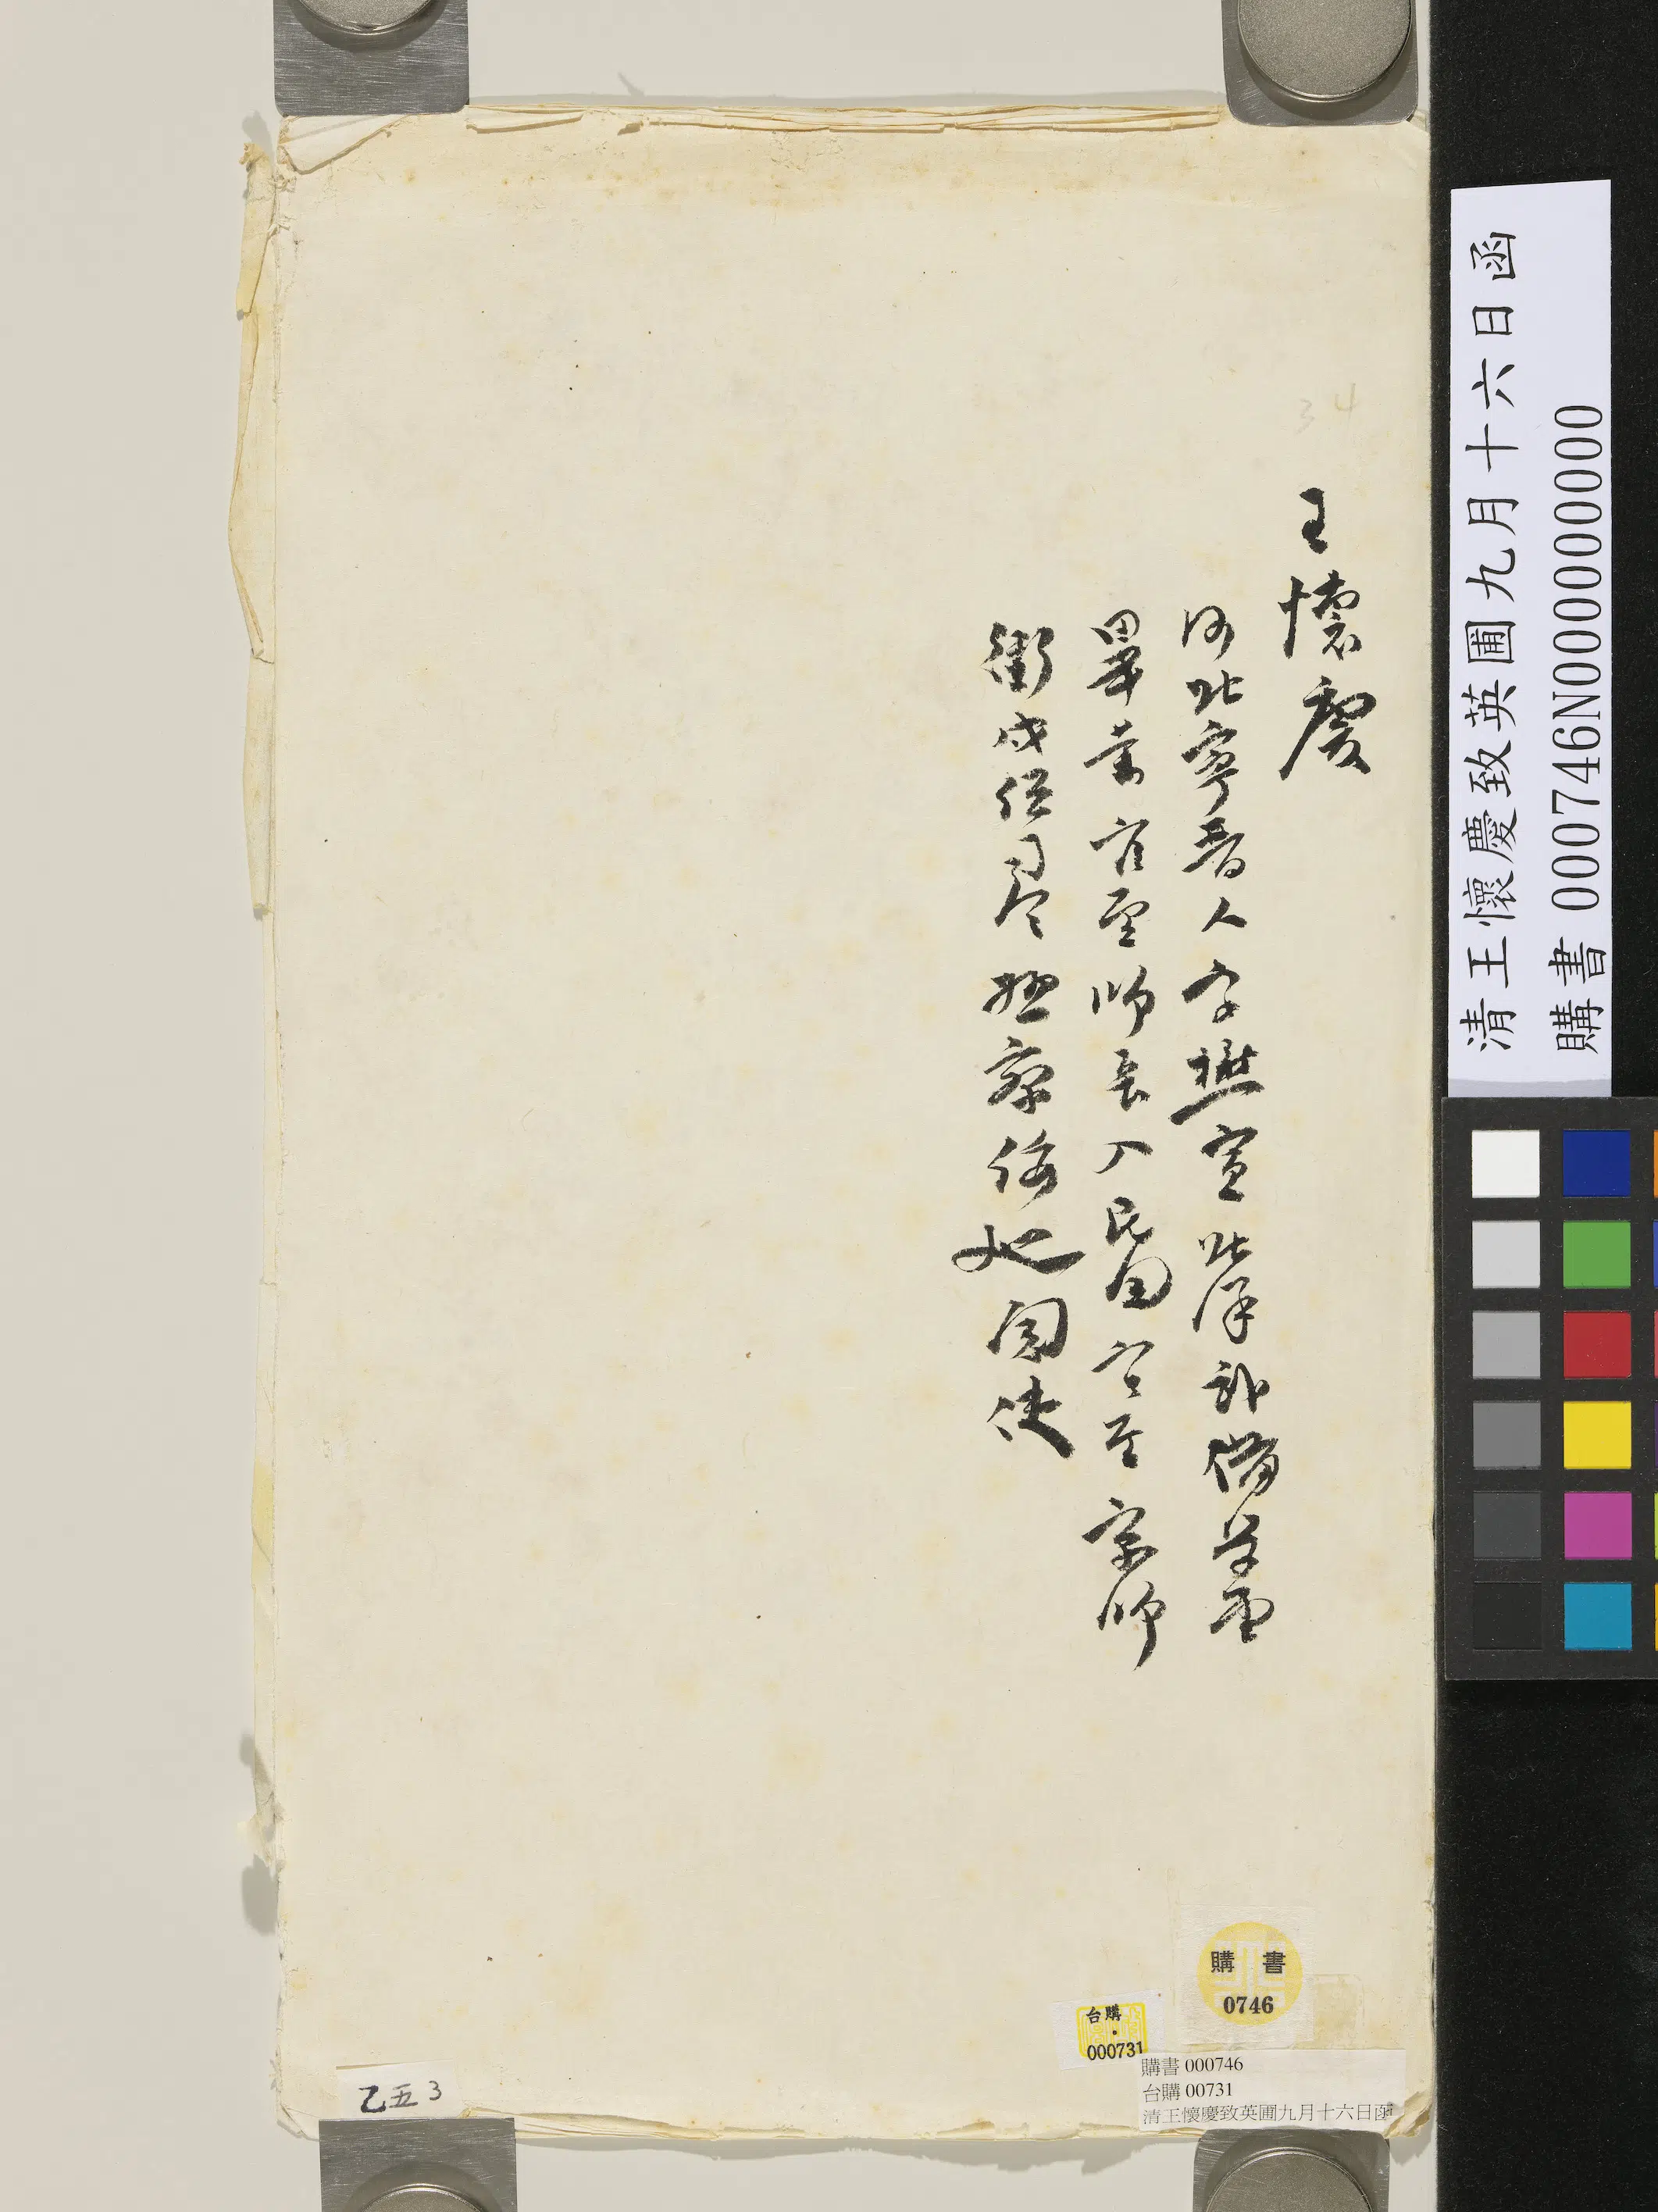 34
王懷慶
河北寧晉人字懋宣北洋武備學堂
畢業官至師長入民國官至京師
衛戍總司令熱察綏巡閱使
清王懷慶致英圃九月十六日函
購書 000746N000000000
購書
0746
台購
000731
購書 000746
台購 00731
清王懷慶致英圃九月十六日函
乙五3